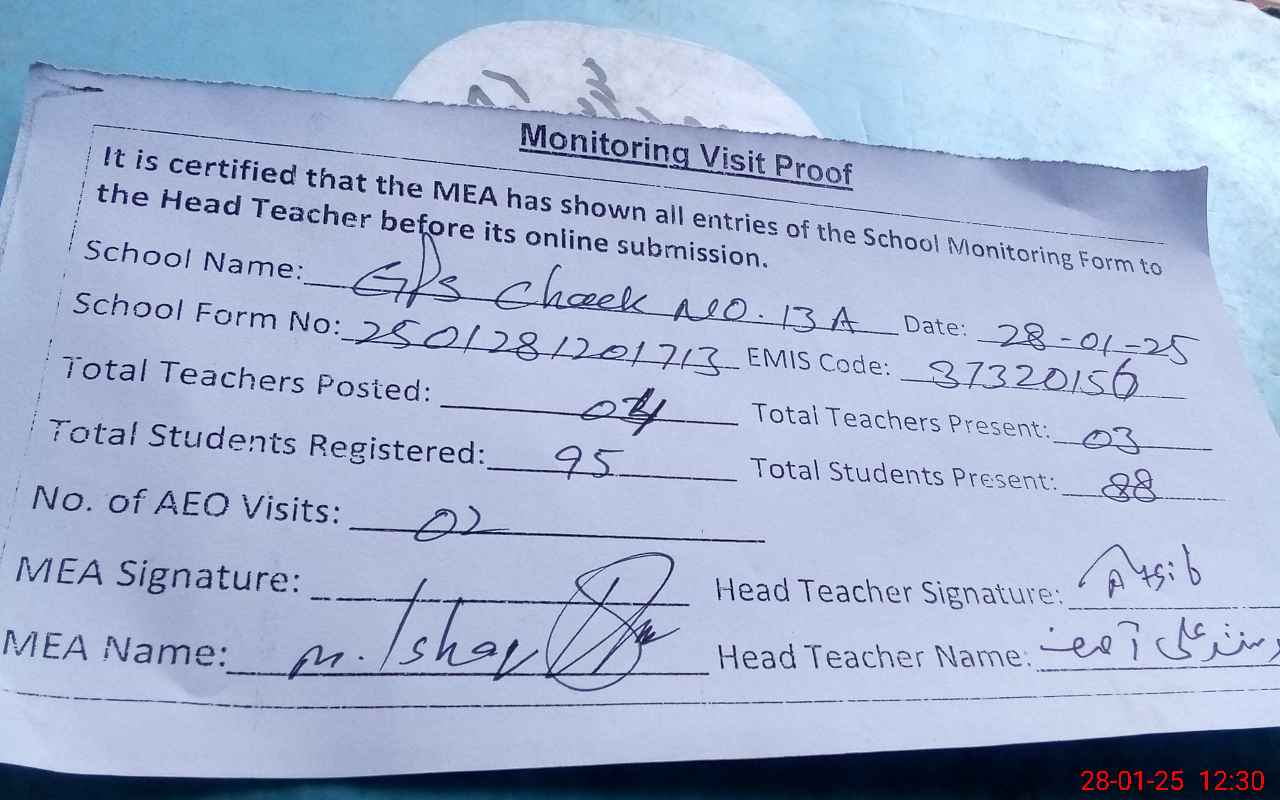 Monitoring Visit Proof
It is certified that the MEA has shown all entries of the School Monitoring Form to
the Head Teacher before its online submission.
School Name: GPS Chaek NO. 13 A Date: 28-01-25
School Form No: 2501281201713 EMIS Code: 37320156
Total Teachers Posted: 04 Total Teachers Present: 03
Total Students Registered: 95 Total Students Present: 88
No. of AEO Visits: 02
MEA Signature: Head Teacher Signature:
MEA Name: M. Ishaq Head Teacher Name:
28-01-25 12:30